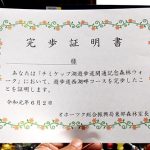 完歩証明書
様
あなたは「チミケップ湖遊歩道開通記念森林ウォ
ーク」において、遊歩道西湖畔コースを完歩したこ
とを証します。
令和元年6月2日
オホーツク総合振興局東部森林室長